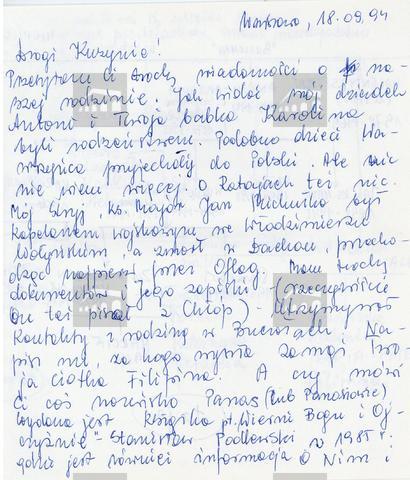 18.09.94
Drogi Kuzynie!
Przesyłam Ci trochę wiadomości o na-
szej rodzinie. Jak widać mój dziadek
Antoni i Twoja babka Karolina
byli rodzeństwem. Podobno dzieci Wa-
wrzyńca przyjechały do Polski. Ale nic
nie wiem więcej. O Ratajach też nic.
Mój stryj, ks. Major Jan Michułka był
kapelanem wojskowym we Włodzimierzu
Wołyńskim, a zmarł w Dachau, przecho-
dząc najpierw przez Oflag. Mam trochę
dokumentów, jego zapiski (rzeczywiście
On też pisał z Chłop) - Utrzymywał
kontakty z rodziną w Na-
pisz mi, za kogo wyszła zamąż Two-
ja ciotka Filipina. A czy mówi
Ci coś nazwisko Panas (lub Panasowie)
Wydana jest książka pt. Wierni Bogu i Oj-
czyźnie" - Stanisław Podlewski w 1985 r.
gdzie jest również informacja o Nim i